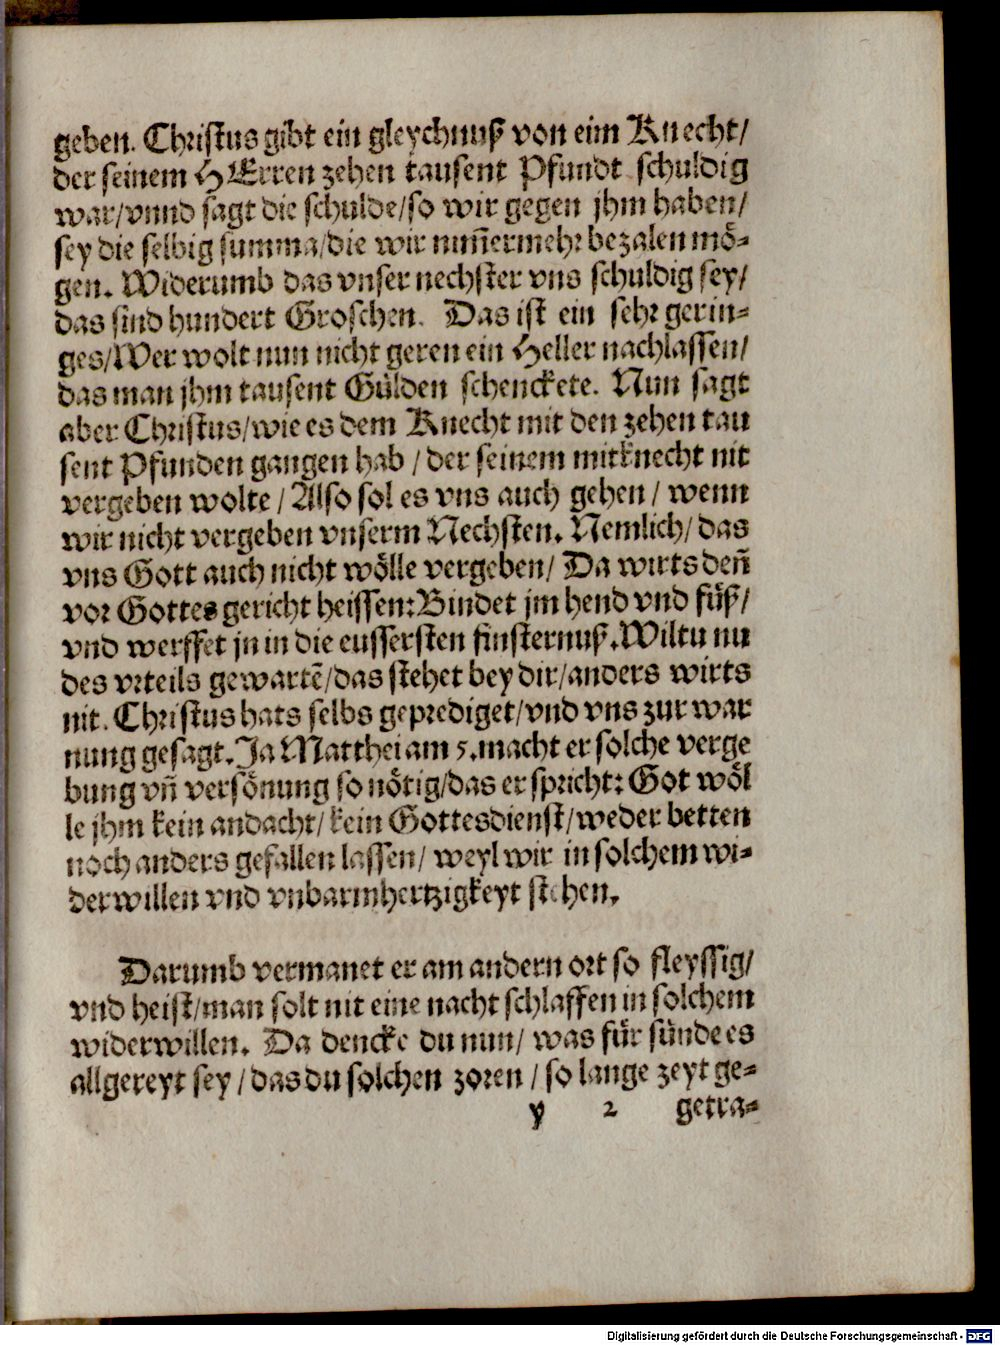 geben. Christus gibt ein gleychnuß von eim Knecht/
der seinem HErren zehen tausent Pfundt schuldig
war/vnnd sagt die schulde/so wir gegen jhm haben/
sey die selbig summa/die wir nim̄ermehr bezalen mö-
gen. Widerumb das vnser nechster vns schuldig sey/
das sind hundert Groschen. Das ist ein sehr gerin-
ges/Wer wolt nun nicht geren ein Heller nachlassen/
das man jhm tausent Gülden schenckete. Nun sagt
aber Christus/wie es dem Knecht mit den zehen tau
sent Pfunden gangen hab / der seinem mitknecht nit
vergeben wolte / Also sol es vns auch gehen / wenn
wir nicht vergeben vnserm Nechsten. Nemlich/ das
vns Gott auch nicht wölle vergeben/ Da wirts deñ
vor Gottes gericht heissen: Bindet jm hend vnd füß/
vnd werffet jn in die eussersten finsternuß. Wiltu nu
des vrteils gewartē/das stehet bey dir/anders wirts
nit. Christus hats selbs geprediget/vnd vns zur war
nung gesagt. Ja Matthei am 5. macht er solche verge
bung vñ versönung so nötig/das er spricht: Got wöl
le jhm kein andacht/ kein Gottesdienst/weder betten
noch anders gefallen lassen/ weyl wir in solchem wi-
derwillen vnd vnbarmhertzigkeyt stehen.
Darumb vermanet er am andern ort so fleyssig/
vnd heist/man solt nit eine nacht schlaffen in solchem
widerwillen. Da dencke du nun/ was für sünde es
allgereyt sey / das du solchen zoren / so lange zeyt ge-
y 2 getra-
Digitalisierung gefördert durch die Deutsche Forschungsgemeinschaft - DFG